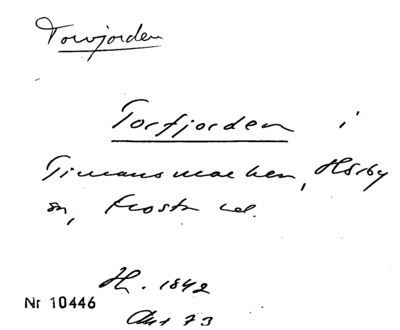 Torvjorden
Torfjorden i
Timansmarken, Hörby
sn, Frosta hd.
H. 1842
Nr 10446
Akt 73